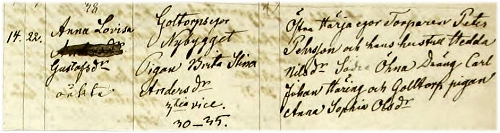 48
14. 22. Anna Lovisa
Gustafsdr
oäkta
Goltorpsegor
Nybygget
Pigan Birta Stina
Andersdr
3tia vice.
30–35.
Östra Härja egor Torparen Peter
Jehsson och hans hustru Hedda
Nilsdr Södra Ohna Dräng Carl
Johan Häring och Golltorp pigan
Anna Sophia Olsdr